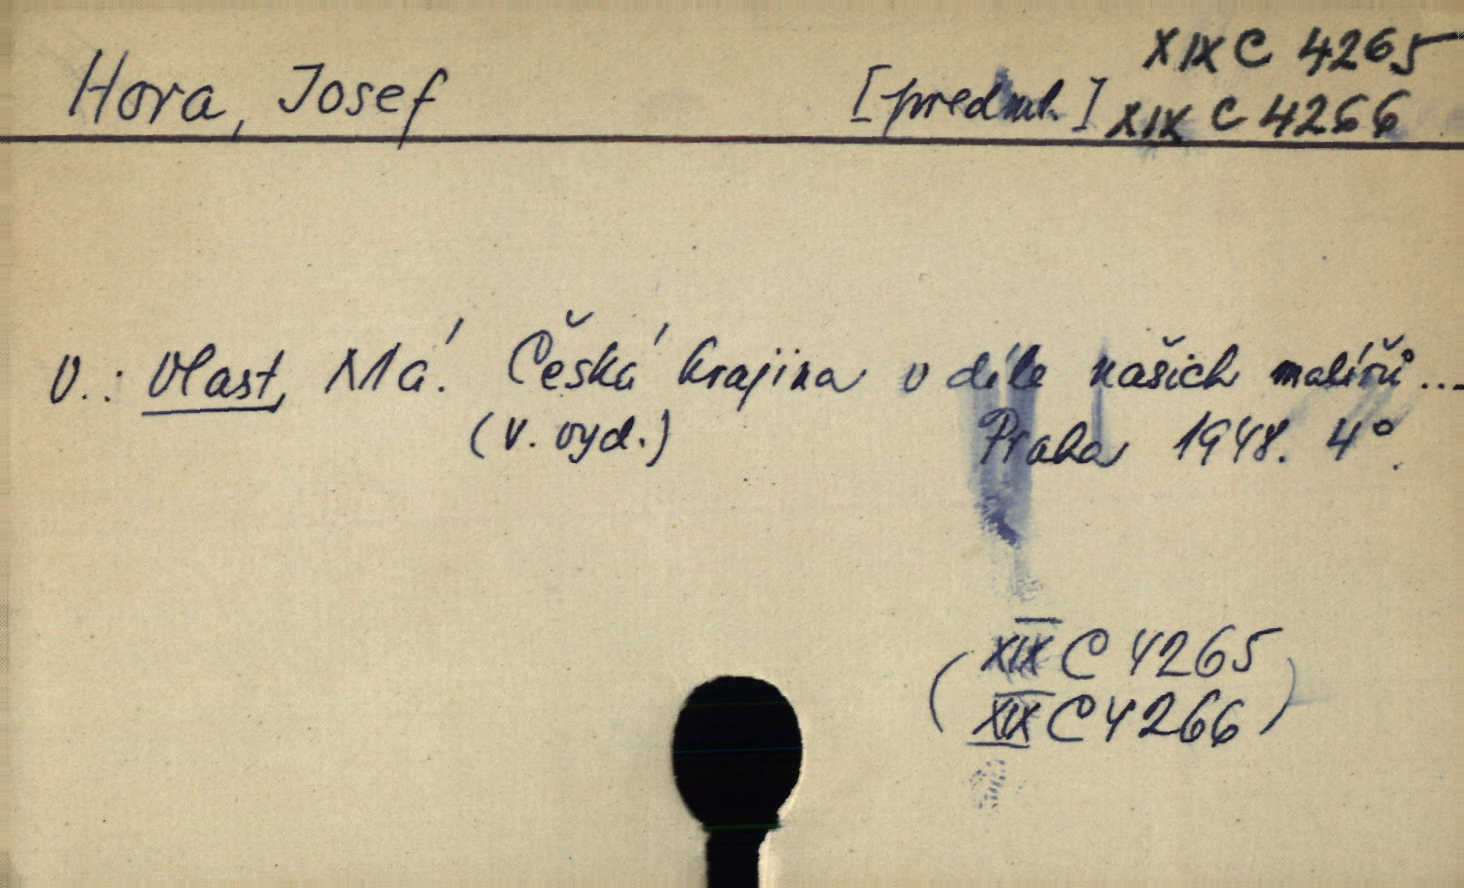 XIX C 4265
Hora, Josef [předml.] XIX C 4266
V.: Vlast, Má. Česká krajina v díle našich malířů...
(V. vyd.) Praha 1948. 4°.
(XIX C 4265
XIX C 4266)